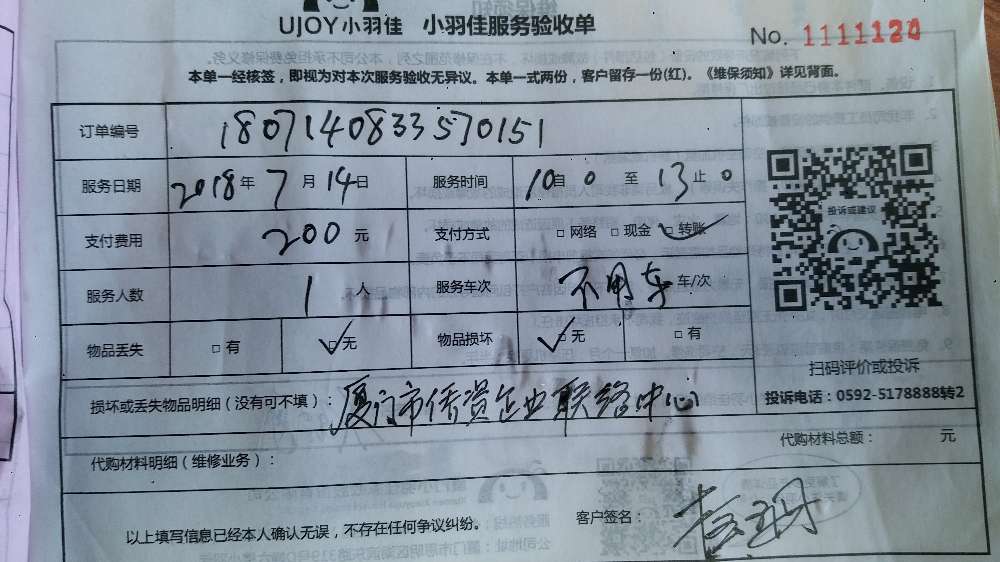 UJOY小羽佳 小羽佳服务验收单
No. 1111124
本单一经核签，即视为对本次服务验收无异议。本单一式两份，客户留存一份(红)。《维保须知》详见背面。
订单编号 180714083357015​1
服务日期 2018年7月14日 服务时间 10自0至13止0
支付费用 200元 支付方式 □网络 □现金 ☑转账
服务人数 1人 服务车次 不用车 车/次
物品丢失 □有 ☑无 物品损坏 ☑无 □有
投诉或建议
扫码评价或投诉
投诉电话：0592-5178888转2
损坏或丢失物品明细（没有可不填）：厦门市侨资企业联络中心
代购材料明细（维修业务）：
代购材料总额： 元
以上填写信息已经本人确认无误，不存在任何争议纠纷。
客户签名：